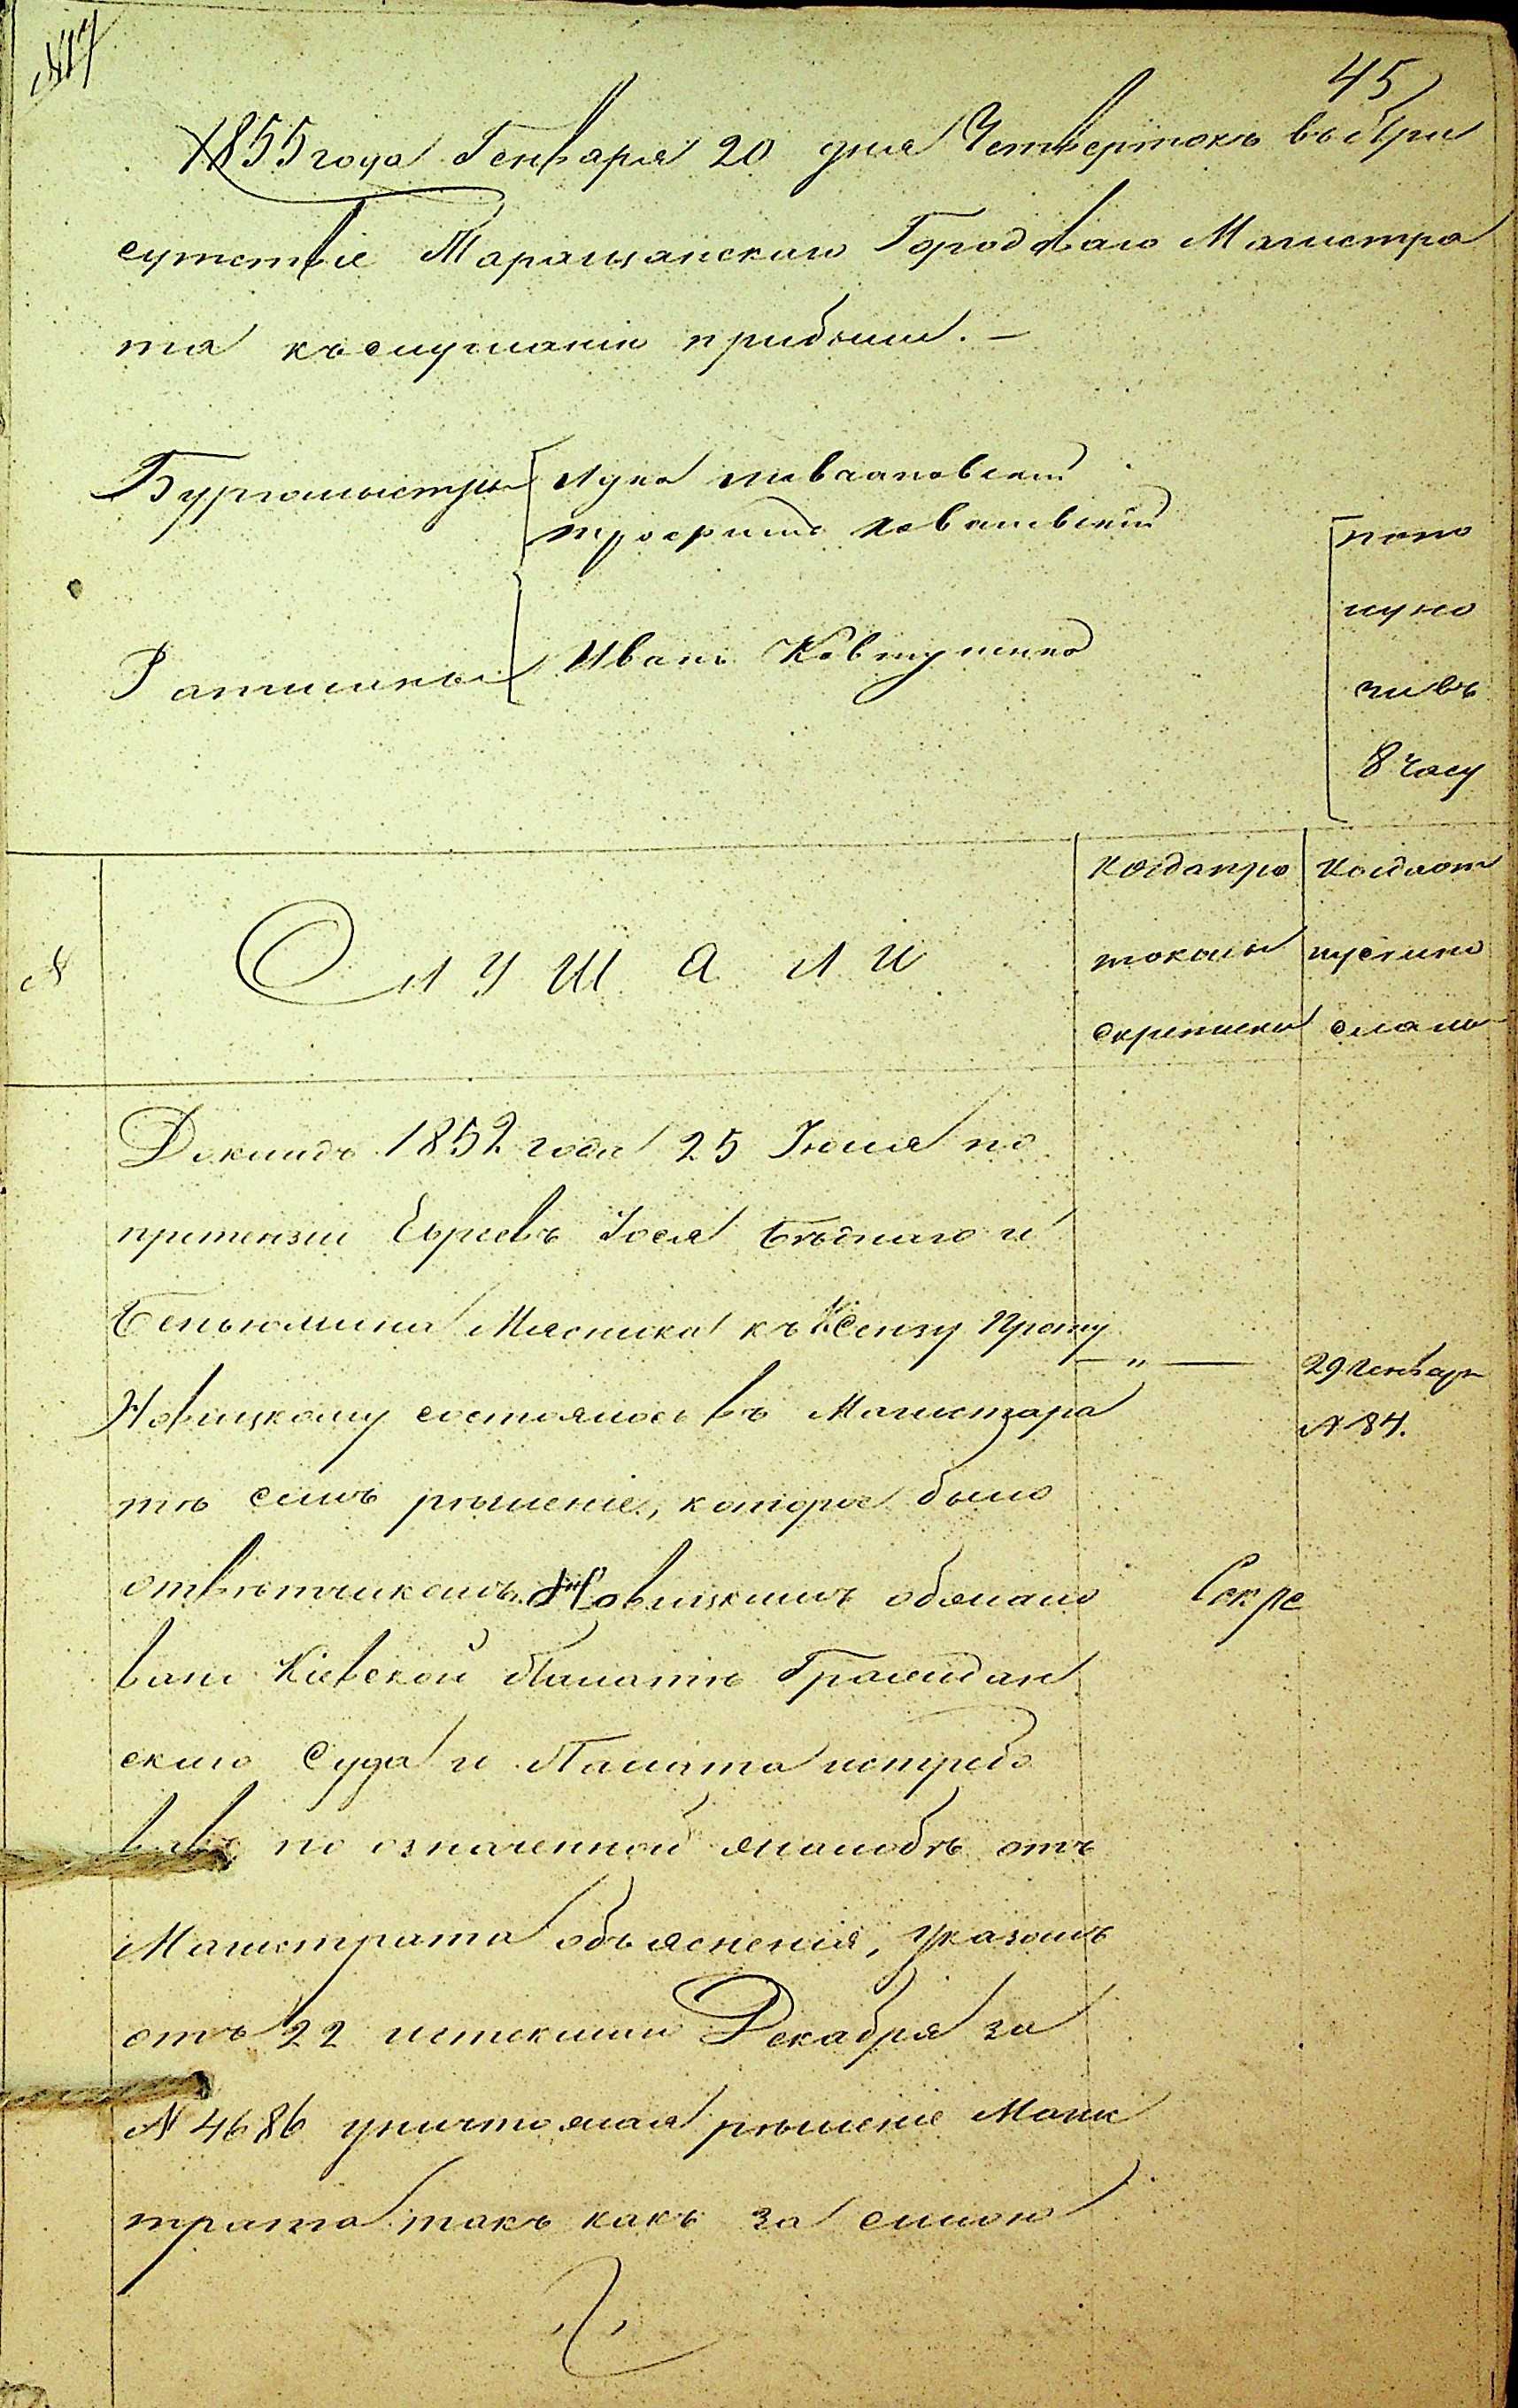 №17
45
1855 года Генваря 20 дня Четвертокъ въ При
сутствіе Таращанскаго Городоваго Магистра
та къ слушанію прибыли. —
Бургомистры Лука
Трофимъ Ковалевскій
Ратманы Иванъ Ковтуненко
по по
луно
чи въ
8 часу
№
СЛУШАЛИ
Когда про
токолъ
скрепленъ
Когда от
пускъ по
сланъ
Докладъ 1852 года 25 Іюля по
претензіи Евреевъ Іося Беднаго и
Беньюмина Мясника къ Ксензу
Новицкому состоялось въ Магистра
тѣ семъ рѣшеніе, которое было
отвѣтчикомъ Новицкимъ обжало
вано Кіевской Палатѣ Граждан
скаго Суда и Палата истребо
вавъ по означенной жалобѣ отъ
Магистрата объясненія, Указомъ
отъ 22 истекшаго Декабря за
№ 4686 уничтожая рѣшеніе Магис
трата такъ какъ за силою
— " —
29 Генваря
№ 84.
Секре